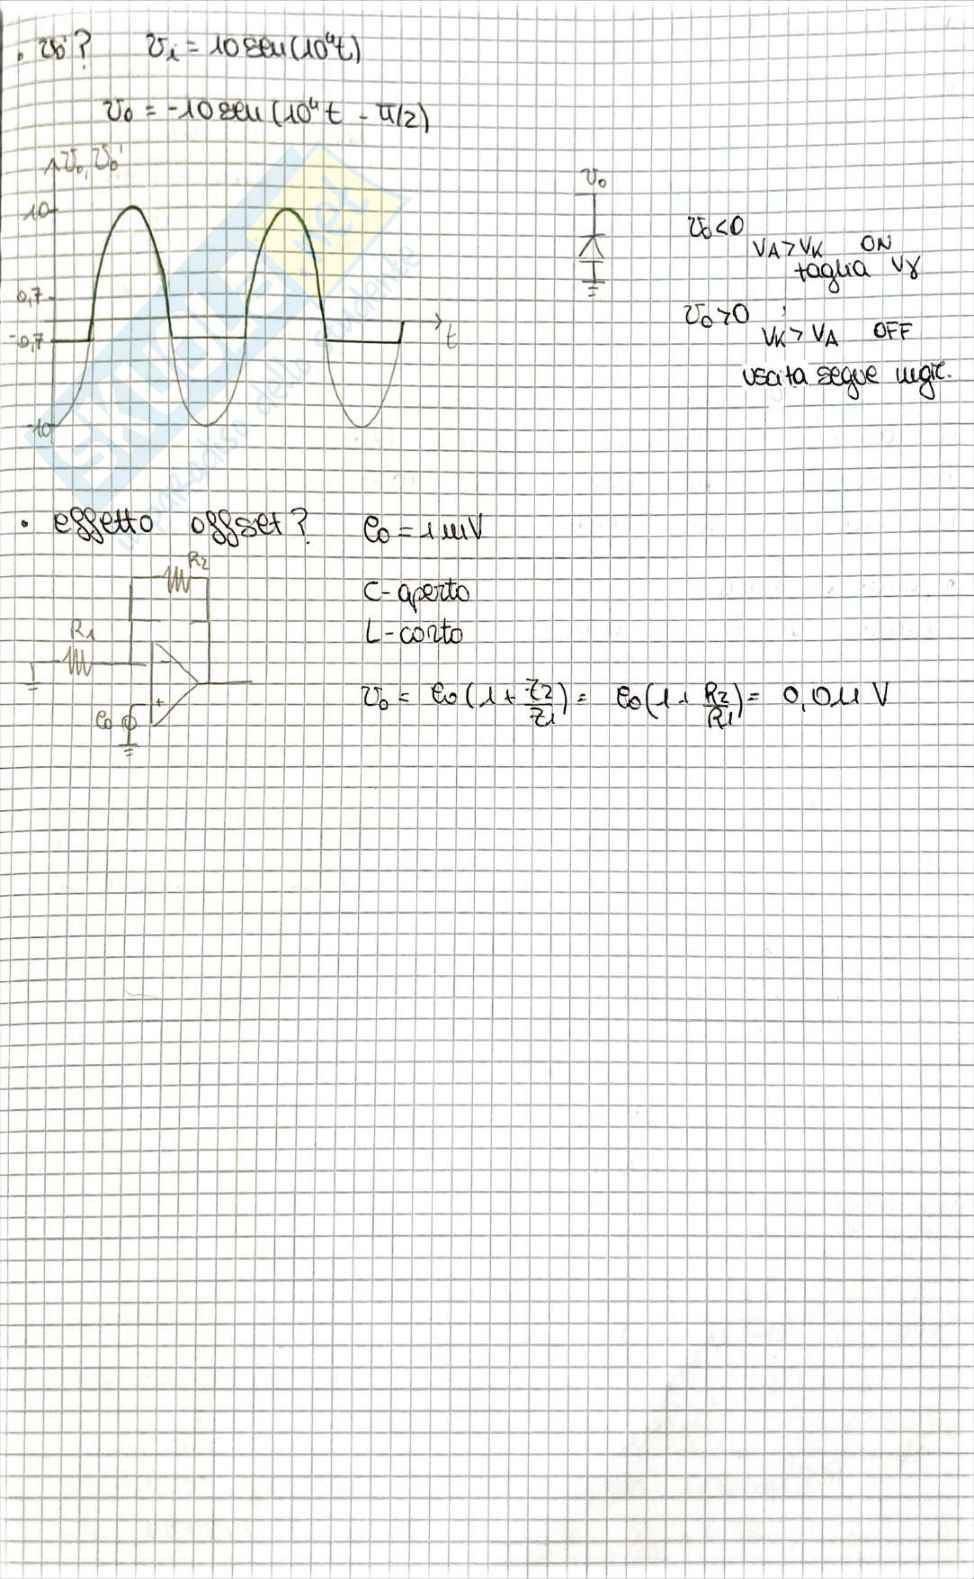 . vo'? vi = 10 sen(10⁴t)
vo = -10 sen(10⁴t - π/2)
vo, vo'
10
0,7
-0,7
-10
t
vo
vo<0
VA>VK ON
taglia Vγ
vo>0
VK>VA OFF
uscita segue ingr.
SKUOLA.net
il paradiso dello studente
• effetto offset? eo = 1mV
R2
R1
eo
-
+
C-aperto
L-corto
vo = eo(1+Z2/Z1) = eo(1+R2/R1) = 0,011 V